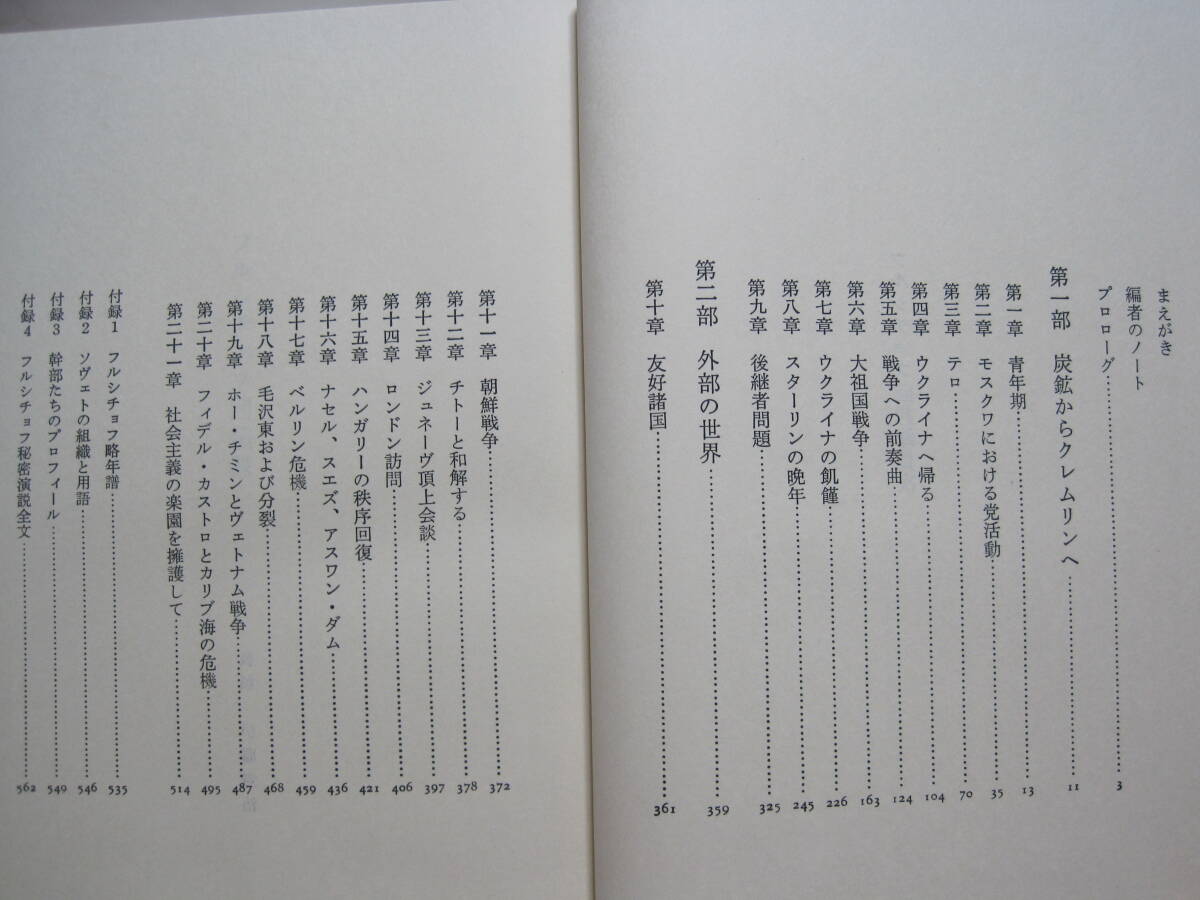 まえがき
編者のノート
プロローグ……………………3
第一部 炭鉱からクレムリンへ……………………11
第一章 青年期……………………13
第二章 モスクワにおける党活動……………………35
第三章 テロ……………………70
第四章 ウクライナへ帰る……………………104
第五章 戦争への前奏曲……………………124
第六章 大祖国戦争……………………163
第七章 ウクライナの飢饉……………………226
第八章 スターリンの晩年……………………245
第九章 後継者問題……………………325
第二部 外部の世界……………………359
第十章 友好諸国……………………361
第十一章 朝鮮戦争……………………372
第十二章 チトーと和解する……………………378
第十三章 ジュネーヴ頂上会談……………………397
第十四章 ロンドン訪問……………………406
第十五章 ハンガリーの秩序回復……………………421
第十六章 ナセル、スエズ、アスワン・ダム……………………436
第十七章 ベルリン危機……………………459
第十八章 毛沢東および分裂……………………468
第十九章 ホー・チミンとヴェトナム戦争……………………487
第二十章 フィデル・カストロとカリブ海の危機……………………495
第二十一章 社会主義の楽園を擁護して……………………514
付録1 フルシチョフ略年譜……………………535
付録2 ソヴェトの組織と用語……………………546
付録3 幹部たちのプロフィール……………………549
付録4 フルシチョフ秘密演説全文……………………562